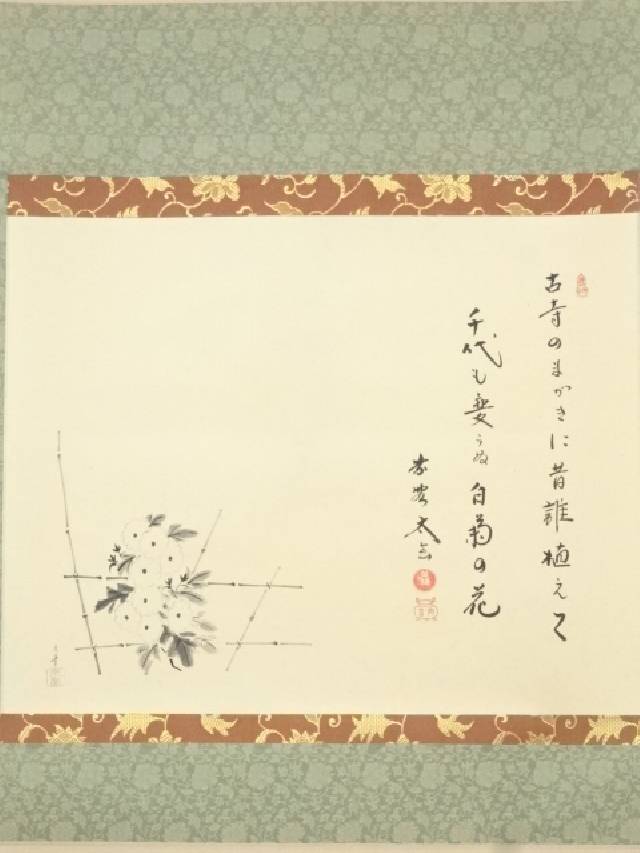 古寺のまがきに昔誰植えて
千代も変らぬ白菊の花